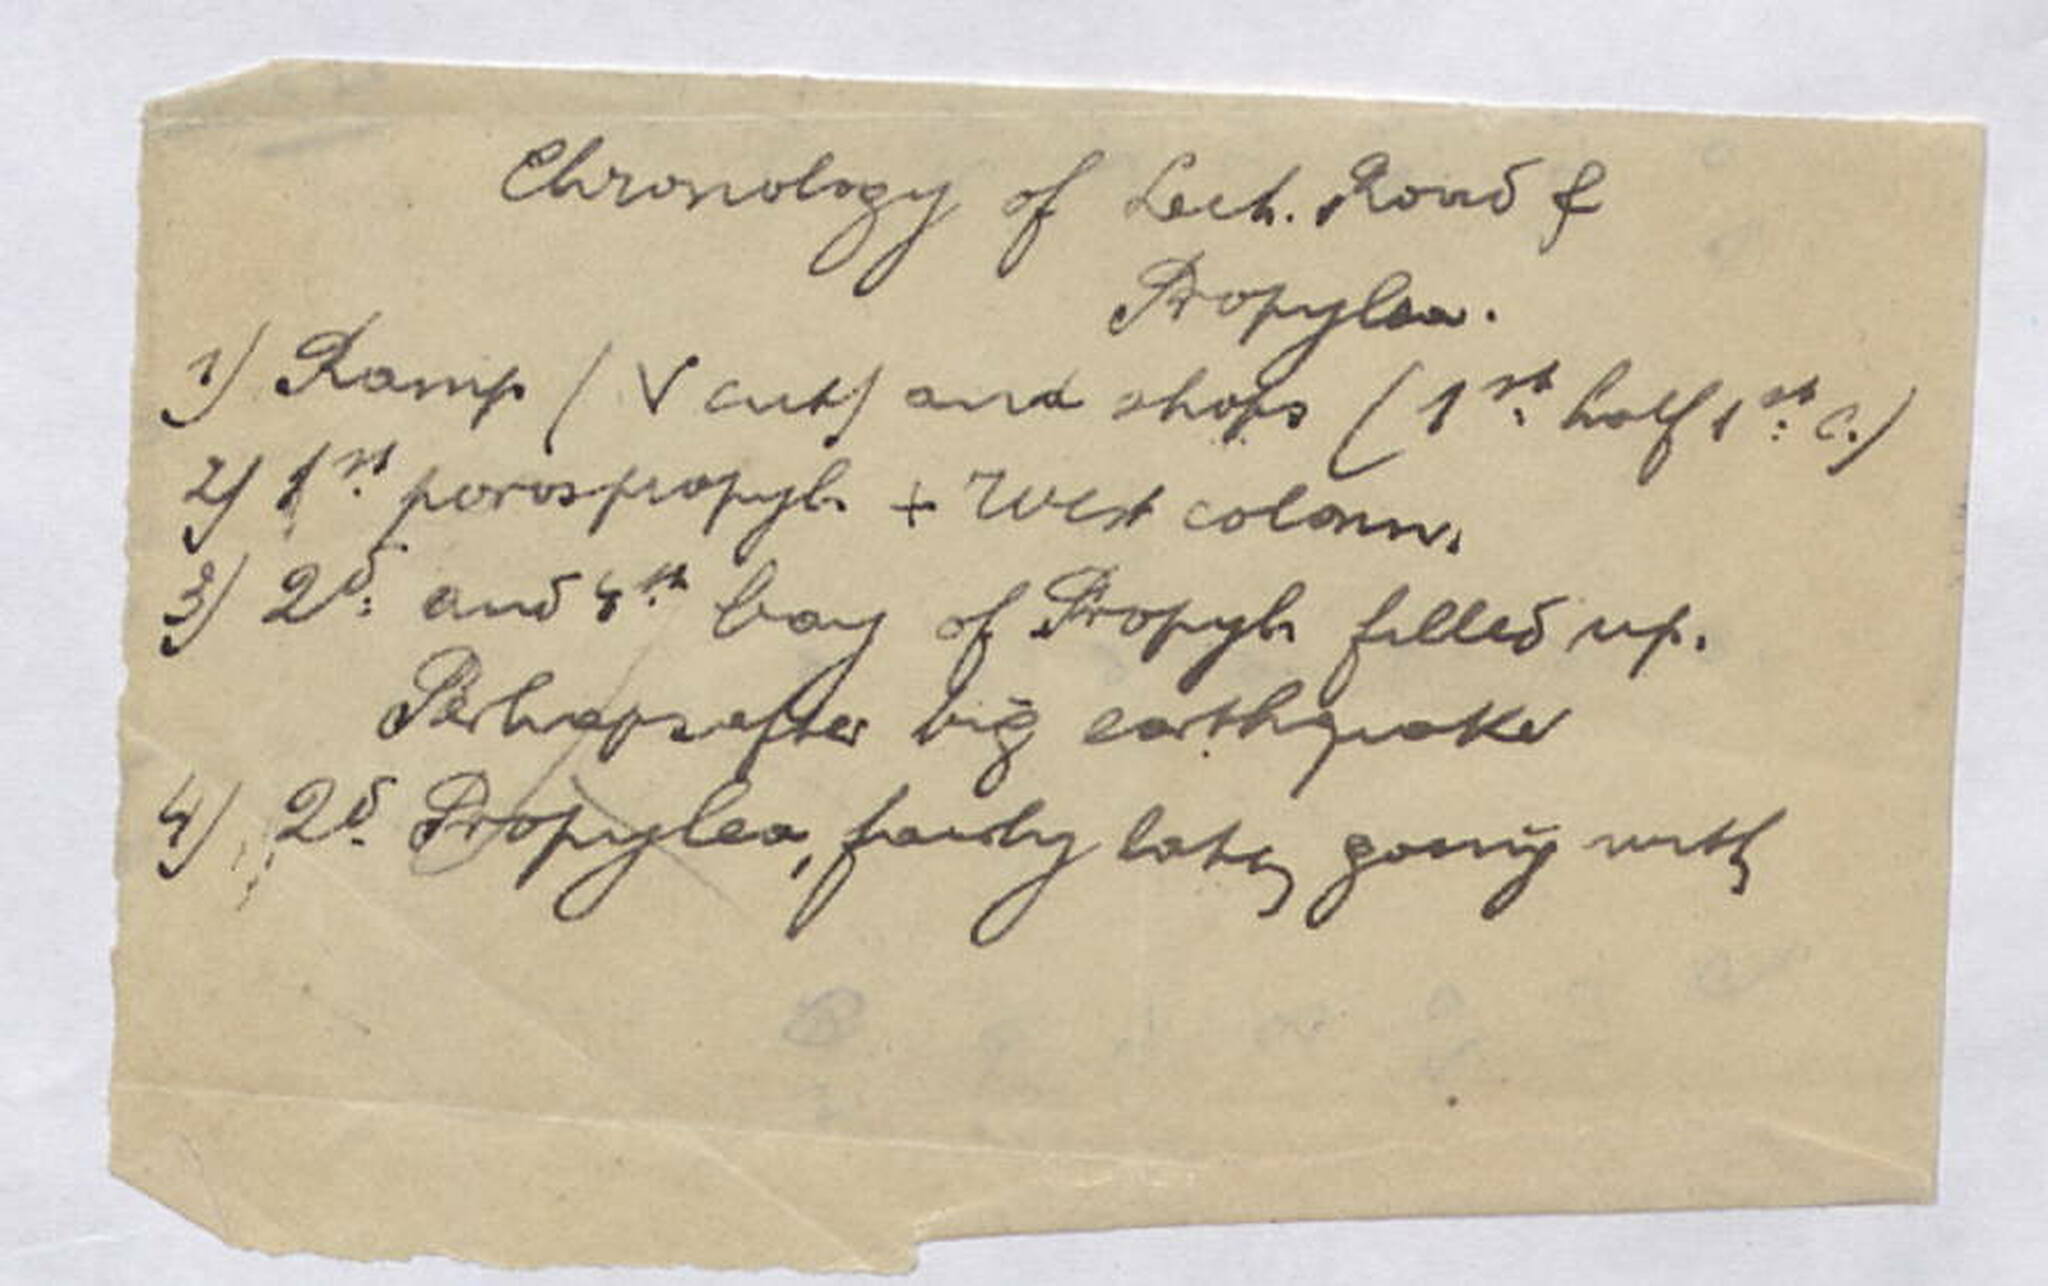 Chronology of Lech. Road &
Propylea.
1) Ramp (V cut) and shops (1st. half 1st. c.)
2) 1st. porospropyl. + West colonn.
3) 2d. and 4th. bay of Propyl. filled up.
Perhaps after big earthquake
4) 2d. Propylea, fairly late, going with